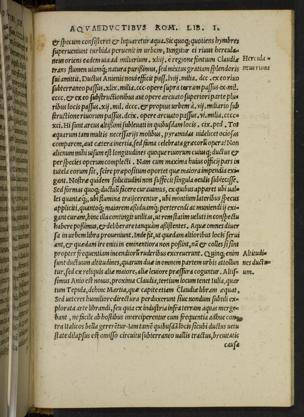 AQVAEDVCTIBVS ROM. LIB. I.
& specum consisteret & liquaretur aqua. Sic quoque quotiens hymbres
superveniunt turbida pervenit in urbem, Iungitur ei rivus hercula-
neus oriens eadem via ad miliarium, xiiij. è regione fontium Claudiæ
trans flumen viamque, natura purissimus, sed mixtus gratiam splendoris
sui amittit. Ductus Anionis novi efficit pass.
subterraneo passus,
& ex eo substructionibus aut opere arcuato superiori parte plu-
ribus locis passus,
structione rivorum passus,
Hi sunt arcus altissimi sublevati in quibusdam locis, cix. ped. Tot
aquarum tam multis necessariis molibus, pyramidas videlicet ociosas
comparem, aut cætera inertia, sed fama celebrata græcorum opera? Non
alienum mihi visum est longitudines quoque rivorum cuiusque ductus et
per species operum complecti. Nam cum maxima huius officii pars in
tutela eorum sit, scire præpositum oportet quæ maiora impendia exi-
gant. Nostræ quidem solicitudini non suffecit singula oculis subiecisse.
Sed formas quoque ductuum facere curavimus, ex quibus apparet ubi val-
les quantæque, ubi flumina traiicerentur, ubi montium lateribus specus
applicitis, quantò maiorem assiduamque pertendi ac muniendi exi-
gant curam, hinc illa contingit utilitas, ut rem statim velut in conspectu
habere possimus, & deliberare tanquam assistentes. Aquæ omnes diver-
sa in urbem libra proveniunt. Inde fit, ut quædam altioribus locis servi-
ant, & quædam in eminentiora non possint, nam & colles sensim
propter frequentiam incendiorum ruderibus excreverunt. Quinque enim
sunt ductuum altitudines, quarum duæ in omnem partem urbis attollun-
tur, sed ex reliquis aliæ maiore, aliæ leviore pressura coguntur. Altis-
simus Anio est novus, proxima Claudia, tertium locum tenet Iulia, quar-
tum Tepula, dehinc Martia, quæ capite etiam Claudiæ libram æquat.
Sed veteres humiliore directura perduxerunt sive nondum subtili ex-
plorata arte librandi, seu quia ex industria infra terram aquas merge-
bant, ne facile ab hostibus interciperentur cum frequentia adhuc con-
tra Italicos bella gererentur. Iam tamen quibusdam locis sicubi ductus vetu-
state dilapsus est omisso circuitu subterraneo vallis tractus, brevitatis
causa
Hercula-
neus rivus
Altitudi-
nes ductu-
um.